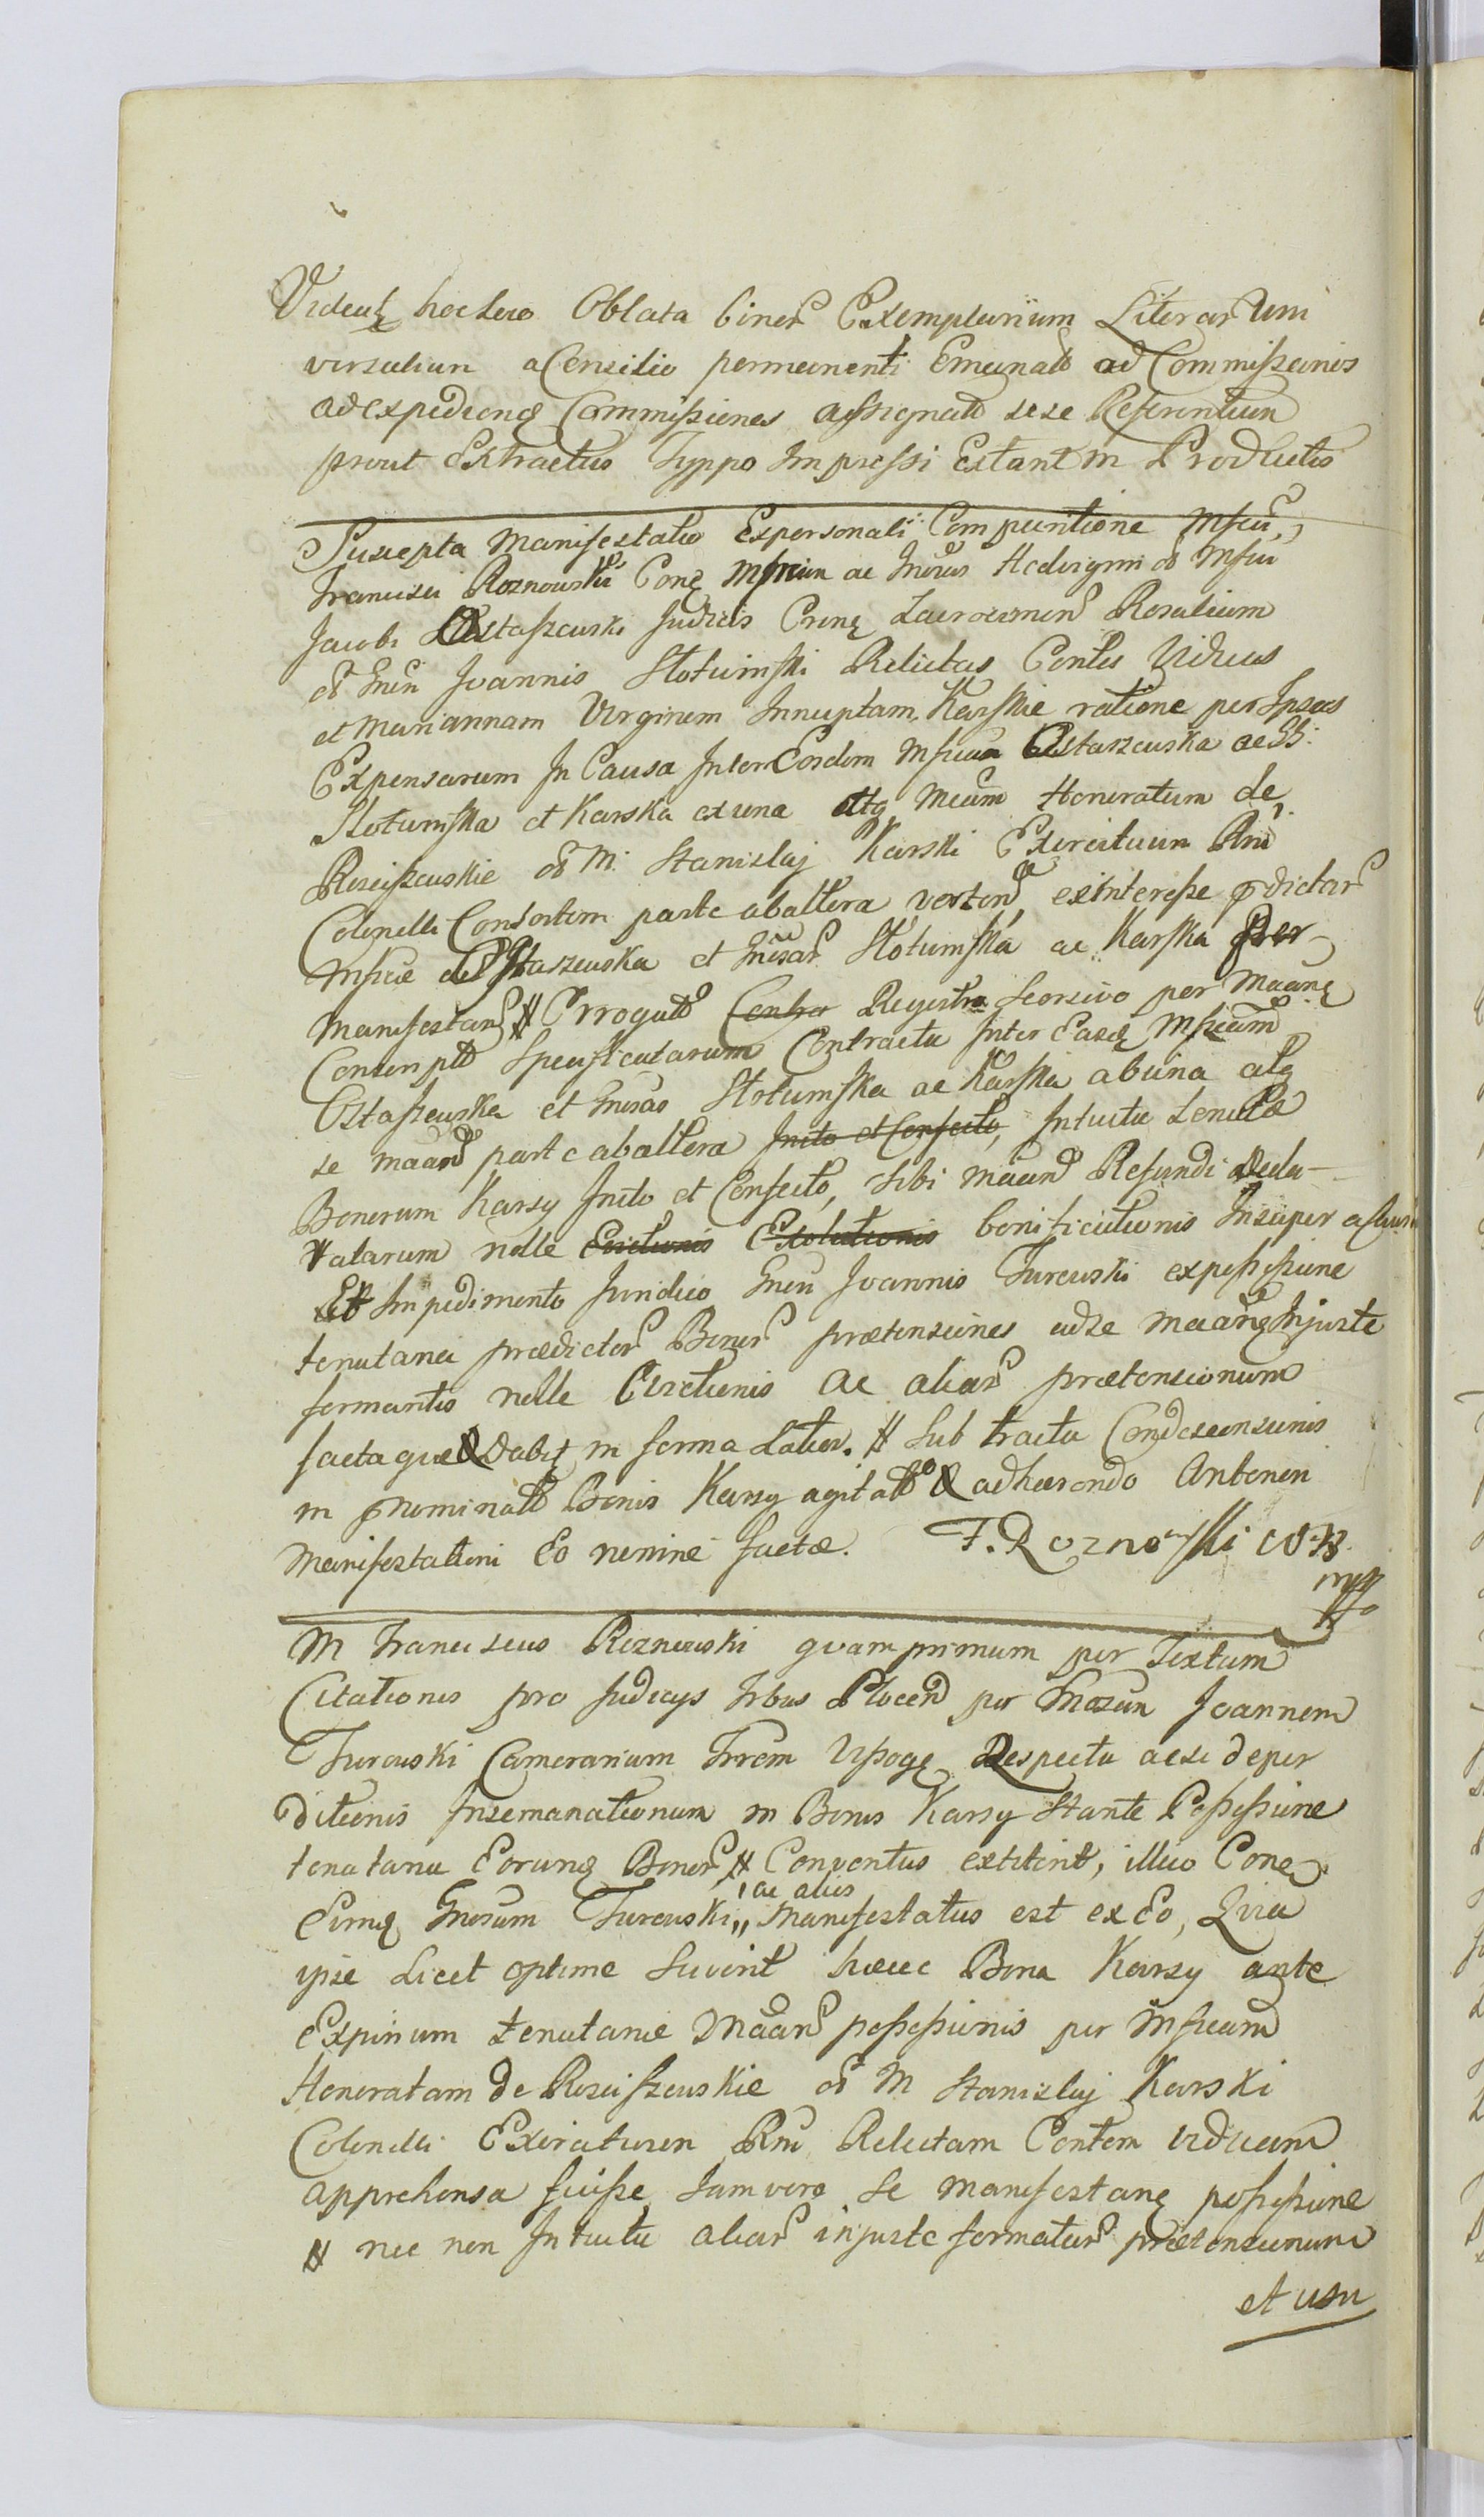 Videatq hoc loco Oblata binor Exemplarium Literar Uni
versalium a Consilio permanenti Emanat ad Commissarios
ad expediend Commissiones assignat sese Referentium
prout Extractus Typpo Impressi Extant in Productis
Suscepta Manifestatio Expersonali Comparitione Mfici
Francisci Roznowski Conq Mficam ac Gnosas Hedvigim ol Mfici
Jacobi Ostaszewski Judicis Rosaliam
ol Gnsi Joannis Slotwinski Relictas Contes Viduas
et Mariannam Virginem Innuptam Karskie ratione per Ipsas
Expensarum In Causa Inter Eandem Mficam Ostaszewska ac
Slotumska et Karska ex una atq Mcam Honoratam de
Rosciszewskie ol M. Stanislaj Karski Exercituum Rni
Colonelli Consortem parte ab altera verten, ex interesse pdictar
Mficae Ostaszewska et Gnosar Slotumska ac Karska per
manifestan # Erogat Contra Registro Seorsivo per Maanq
Conscript Specificatarum Contractu Inter Easd Mficam
Ostaszewska et Gnosas Slotumska ac Karska ab una atq
se maan parte ab altera Inito et Confecto, Intuitu tenutae
Bonorum Karsy Inito et Confecto, sibi maan Refundi decla-
ratarum nolle Evictionis Exolutionis bonificationis Insuper
Et Impedimento Juridico Gnsi Joannis Turowski ex possessione
tenutaria praedictor Bonor praetensiones ad se maanq Injuste
formantis nolle Evictionis ac aliar praetensionum
facta que & Dabit in forma Latior. # Sub tractu Condescensionis
in pnominat Bonis Karsy agitat & adhaerendo Anterion
Manifestationi Eo nomine factae. F. Roznowski
M Franciscus Roznowski quam primum per Textum
Citationis pro Judicijs Trbus Plocen per Gnosum Joannem
Turowski Camerarium Trrem Respectu ac se deper
ditionis Inseminationum in Bonis Karsy Stante Possessione
tenutaria Eorumq Bonor, # Conventus extitint, illico Cone
Eumq Gnosum Turowski,, ac alios Manifestatus est ex Eo, Quia
ipse Licet optime Sciverit haecc Bona Karsy ante
Expirium tenutariae Maan possessionis per Mficam
Honoratam de Rosciszewskie ol M Stanislaj Karski
Colonelli Exercituum Rni Relictam Contem viduam
apprehensa fuisse, Jam vero Se manifestanq possessione
# nec non Intuitu aliar injuste formatar praetensionum
et usu